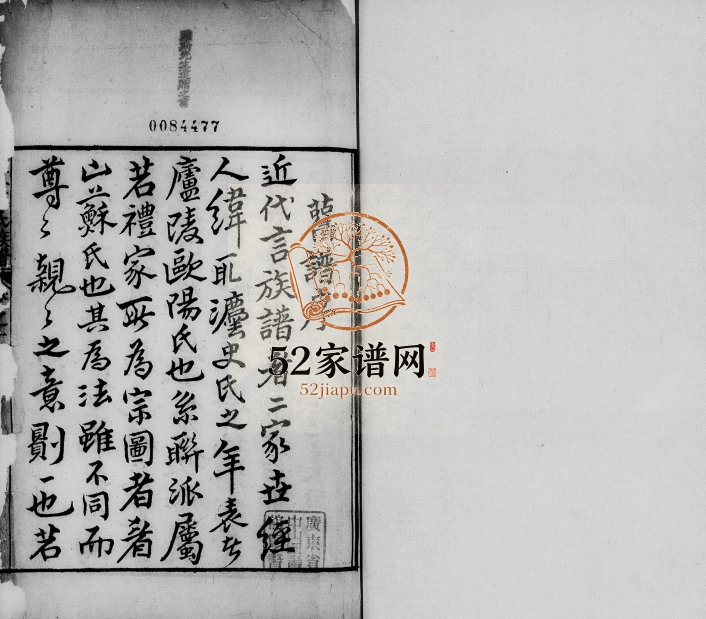 0084477
舊譜序
近代言族譜者二家世經
人緯取灋史氏之年表者
廬陵歐陽氏也系聯派屬
若禮家所為宗圖者眉
山蘇氏也其為法雖不同而
尊〻親〻之意則一也若
52家谱网
52jiapu.com
廣東省